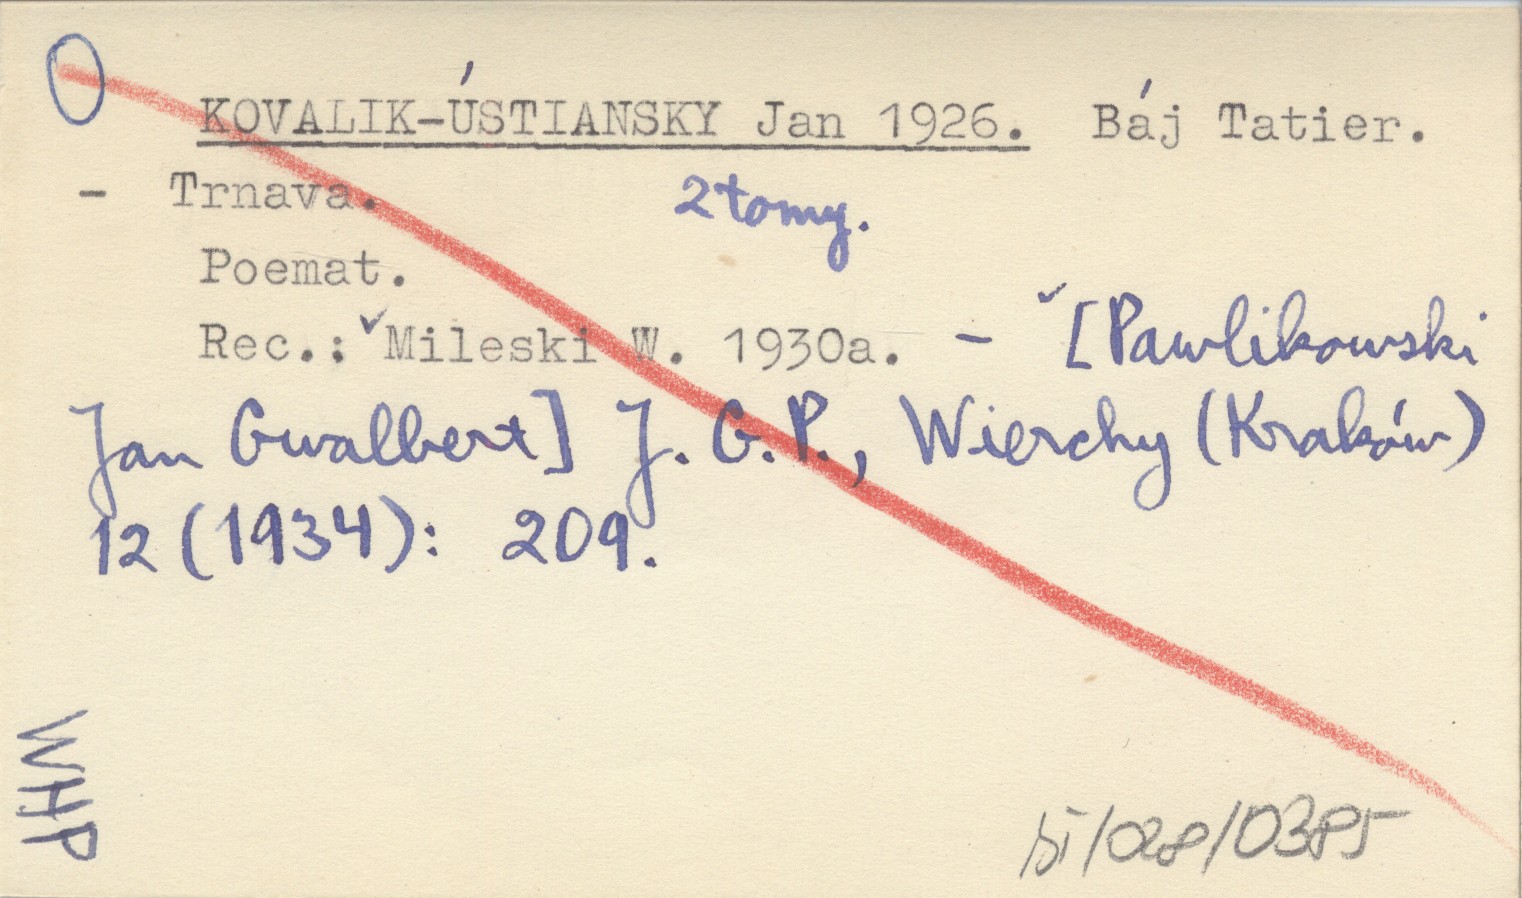 KOVALIK-ÚSTIANSKY Jan 1926. Báj Tatier.
- Trnava. 2 tomy.
Poemat.
Rec.: Mileski W. 1930a. - [Pawlikowski
Jan Gwalbert] J. G. P., Wierchy (Kraków)
12 (1934): 209.
WHP
/028/0385